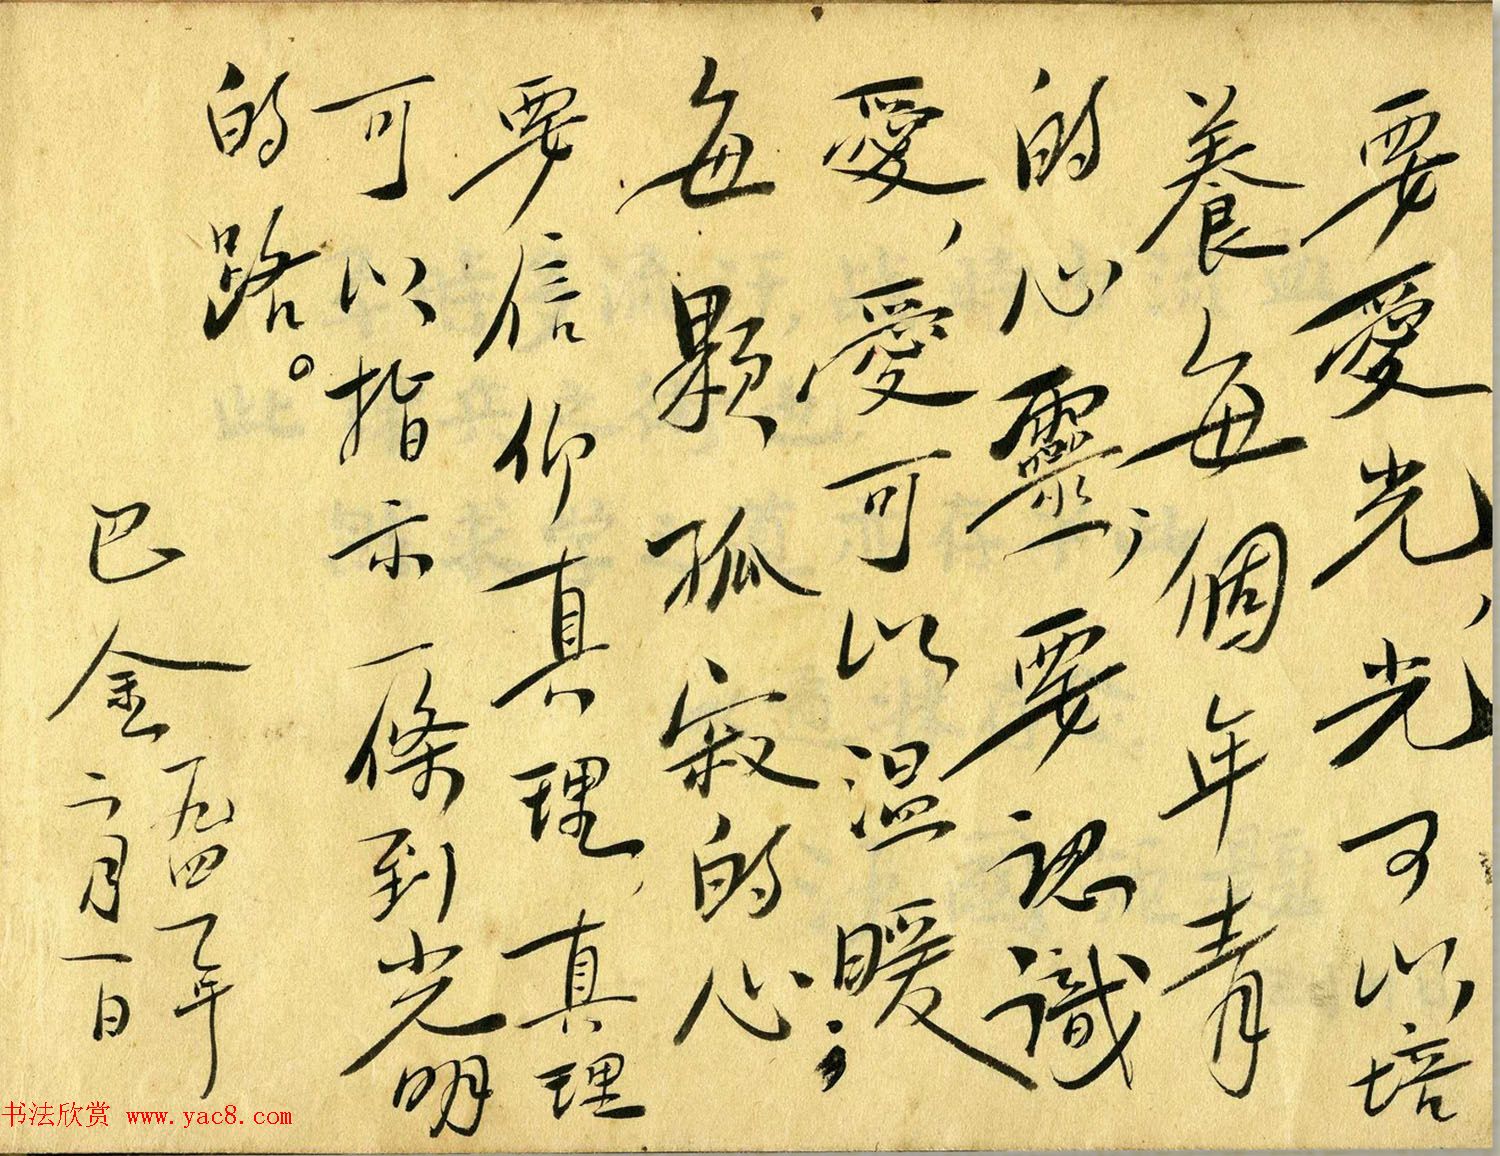 要愛光、光可以培
養每個年青
的心靈；要認識
愛、愛可以溫暖
每顆孤寂的心；
要信仰真理、真理
可以指示一條到光明
的路。
巴金 一九四二年
二月一日
书法欣赏 www.yac8.com